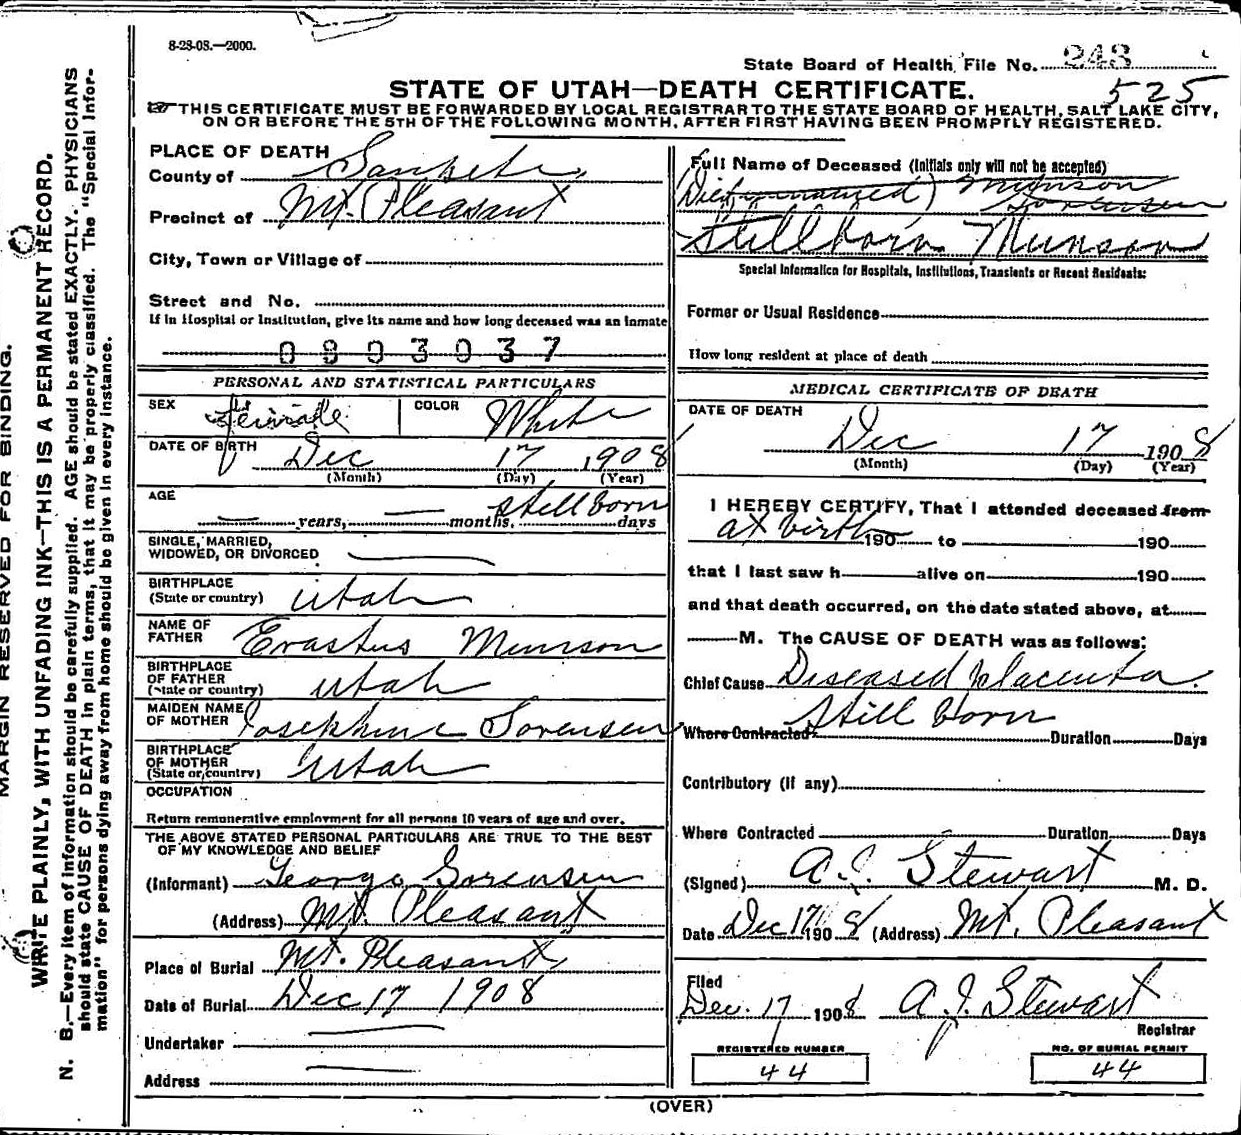 8-23-08.—2000.
State Board of Health, File No. 243
525
STATE OF UTAH—DEATH CERTIFICATE.
THIS CERTIFICATE MUST BE FORWARDED BY LOCAL REGISTRAR TO THE STATE BOARD OF HEALTH, SALT LAKE CITY,
ON OR BEFORE THE 5TH OF THE FOLLOWING MONTH, AFTER FIRST HAVING BEEN PROMPTLY REGISTERED.
MARGIN RESERVED FOR BINDING.
WRITE PLAINLY, WITH UNFADING INK—THIS IS A PERMANENT RECORD.
N. B.—Every item of information should be carefully supplied. AGE should be stated EXACTLY. PHYSICIANS
should state CAUSE OF DEATH in plain terms, that it may be properly classified. The "Special Infor-
mation" for persons dying away from home should be given in every instance.
PLACE OF DEATH
County of Sanpete
Precinct of Mt. Pleasant
City, Town or Village of
Street and No.
If in Hospital or Institution, give its name and how long deceased was an inmate
0803037
PERSONAL AND STATISTICAL PARTICULARS
SEX Female COLOR White
DATE OF BIRTH Dec 17 1908
(Month) (Day) (Year)
AGE stillborn
— years, — months, days
SINGLE, MARRIED,
WIDOWED, OR DIVORCED —
BIRTHPLACE
(State or country) Utah
NAME OF
FATHER Erastus Munson
BIRTHPLACE
OF FATHER
(State or country) Utah
MAIDEN NAME
OF MOTHER Josephine Sorensen
BIRTHPLACE
OF MOTHER
(State or country) Utah
OCCUPATION
Return remunerative employment for all persons 10 years of age and over.
THE ABOVE STATED PERSONAL PARTICULARS ARE TRUE TO THE BEST
OF MY KNOWLEDGE AND BELIEF
(Informant) George Sorensen
(Address) Mt. Pleasant
Place of Burial Mt. Pleasant,
Date of Burial Dec 17 1908
Undertaker —
Address —
Full Name of Deceased (Initials only will not be accepted)
(Died unnamed) Munson
Sorensen
Stillborn Munson
Special Information for Hospitals, Institutions, Transients or Recent Residents:
Former or Usual Residence
How long resident at place of death
MEDICAL CERTIFICATE OF DEATH
DATE OF DEATH
Dec 17 1908
(Month) (Day) (Year)
I HEREBY CERTIFY, That I attended deceased from
at birth 190 to 190
that I last saw h alive on 190
and that death occurred, on the date stated above, at
M. The CAUSE OF DEATH was as follows:
Chief Cause Diseased placenta.
Still born
Where Contracted Duration Days
Contributory (if any)
Where Contracted Duration Days
(Signed) A. J. Stewart M. D.
Date Dec 17 1908 (Address) Mt. Pleasant
Filed
Dec. 17 1908 A. J. Stewart
Registrar
REGISTERED NUMBER
44
NO. OF BURIAL PERMIT
44
(OVER)